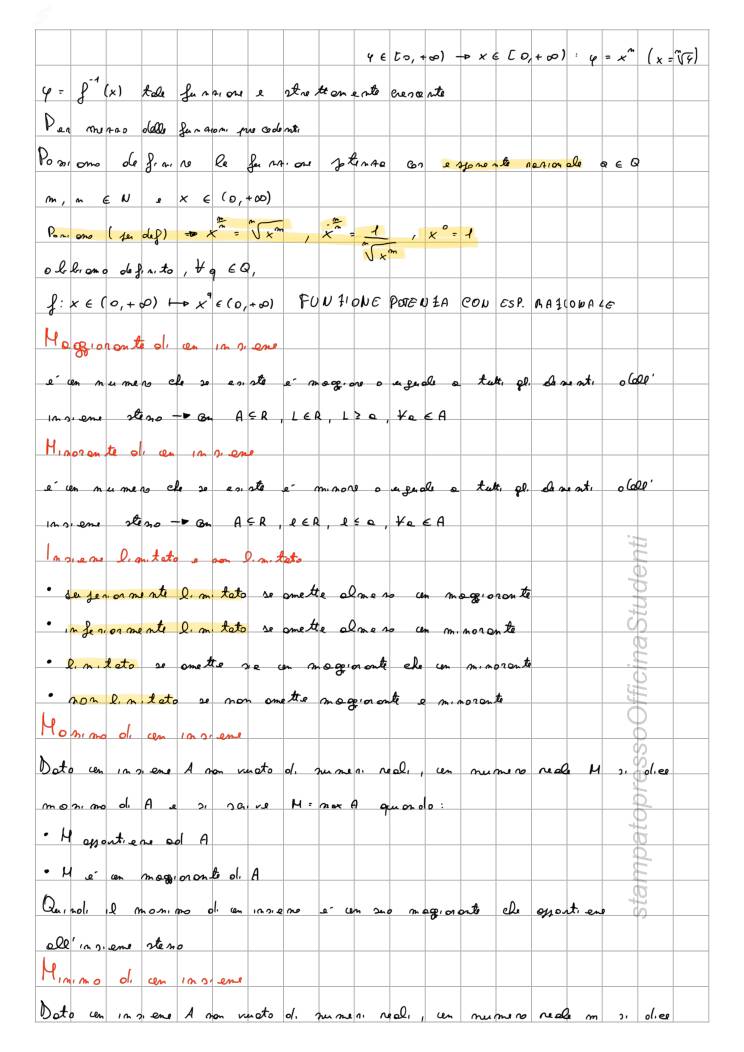 y ∈ [0, +∞) → x ∈ [0, +∞) : y = xⁿ (x = ⁿ√y)
y = f⁻¹(x) tale funzione è strettamente crescente
Per mezzo delle funzioni precedenti
Possiamo definire la funzione potenza con esponente razionale a ∈ Q
m, n ∈ N e x ∈ (0, +∞)
Poniamo (per def) → x^(m/n) = ⁿ√(x^m) , x^(-m/n) = 1/ⁿ√(x^m) , x⁰ = 1
abbiamo definito, ∀q ∈ Q,
f: x ∈ (0, +∞) ↦ x^q ∈ (0, +∞) FUNZIONE POTENZA CON ESP. RAZIONALE
Maggiorante di un insieme
è un numero che se esiste è maggiore o uguale a tutti gli elementi dell'
insieme stesso → Con A ⊆ R , L ∈ R, L ≥ a, ∀a ∈ A
Minorante di un insieme
è un numero che se esiste è minore o uguale a tutti gli elementi dell'
insieme stesso → Con A ⊆ R , l ∈ R, l ≤ a, ∀a ∈ A
Insieme limitato e non limitato
• superiormente limitato se ammette almeno un maggiorante
• inferiormente limitato se ammette almeno un minorante
• limitato se ammette sia un maggiorante che un minorante
• non limitato se non ammette maggiorante e minorante
Massimo di un insieme
Dato un insieme A non vuoto di numeri reali, un numero reale M si dice
massimo di A e si scrive M = max A quando:
• M appartiene ad A
• M è un maggiorante di A
Quindi il massimo di un insieme è un suo maggiorante che appartiene
all'insieme stesso
Minimo di un insieme
Dato un insieme A non vuoto di numeri reali, un numero reale m si dice
stampatopressoOfficinaStudenti